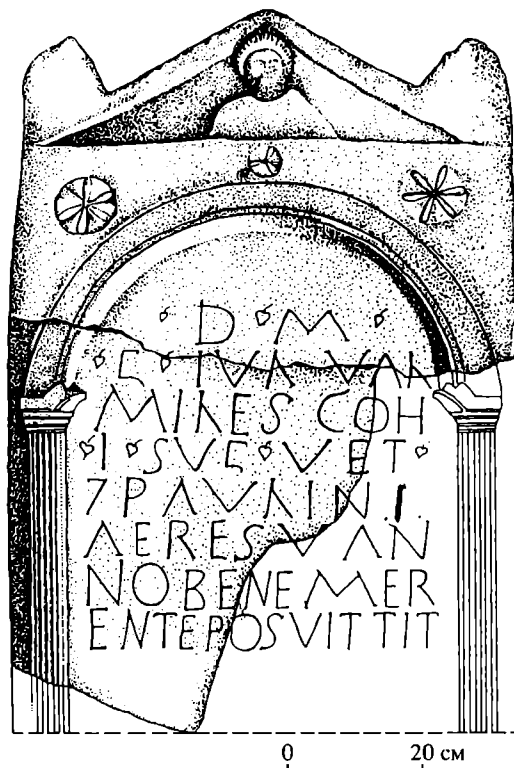 D M
C IVL VAL
MILES COH
I SVG VET
7 PAVLINI
AERES VAN
NO BENE MER
ENTE POSVIT TIT
0 20 см